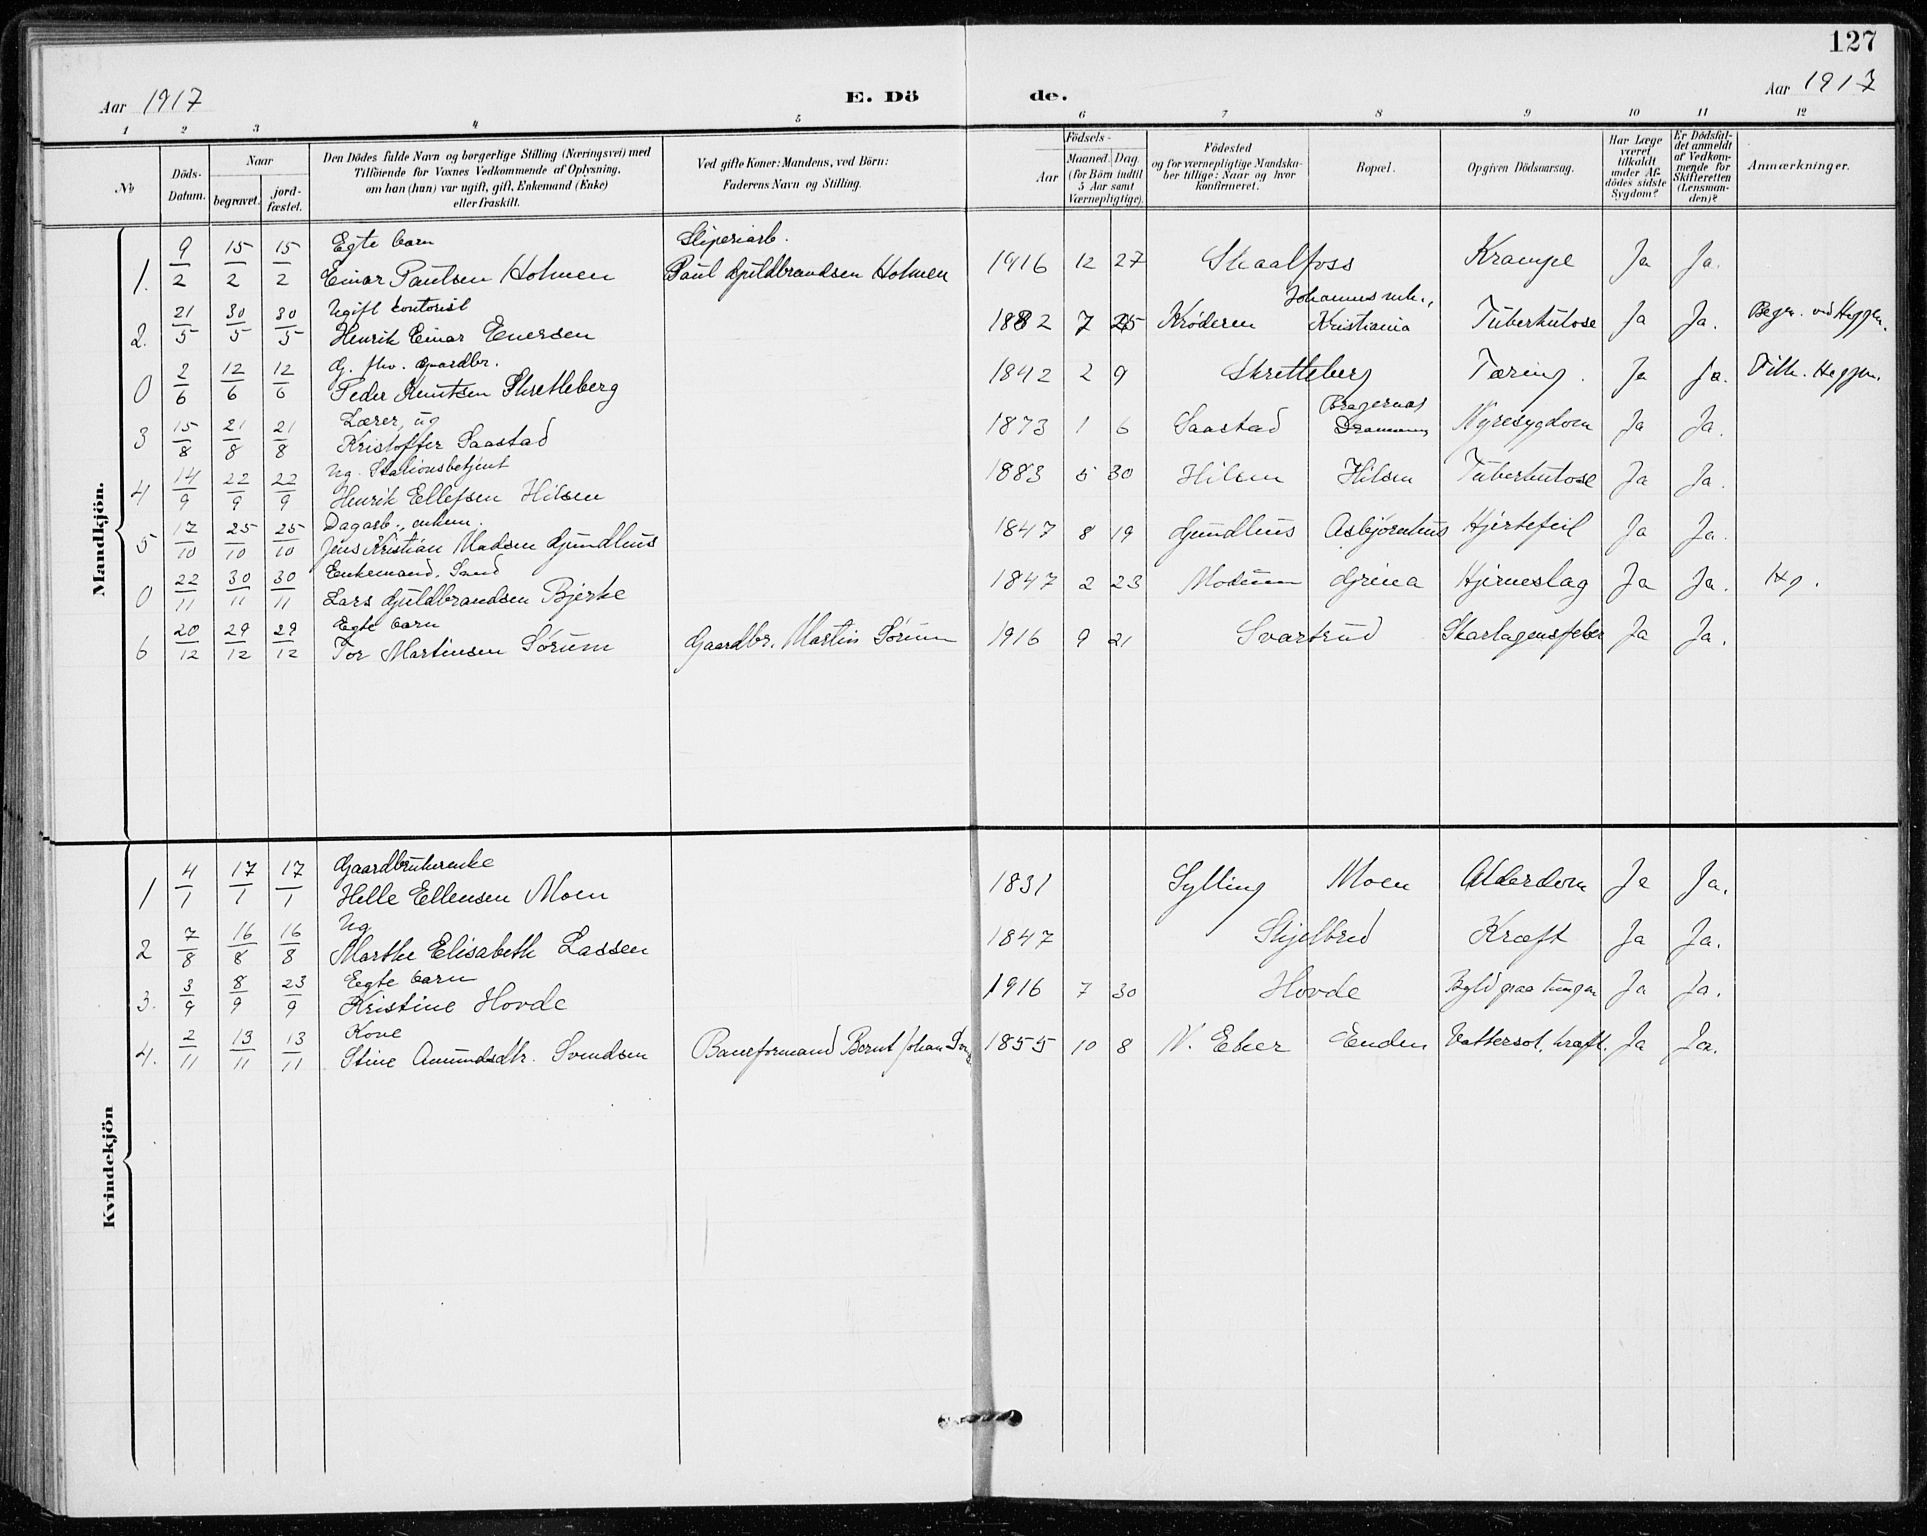 127
Aar 1917 E. Dö de. Aar 1917
1 2 3 4 5 6 7 8 9 10 11 12
No
Döds-Datum.
Naar
begravet.
jord-fæstet.
Den Dödes fulde Navn og borgerlige Stilling (Næringsvei) med
Tilföiende for Voxnes Vedkommende af Oplysning,
om han (hun) var ugift, gift, Enkemand (Enke)
eller fraskilt.
Ved gifte Koner: Mandens, ved Börn:
Faderens Navn og Stilling.
Födsels-
Aar
Maaned. Dag.
(for Börn indtil
5 Aar samt
Værnepligtige).
Födested
og for værnepligtige Mandska-
ber tillige: Naar og hvor
konfirmeret.
Bopæl.
Opgiven Dödsaarsag.
Har Læge
været
tilkaldt
under Af-
dödes sidste
Sygdom?
Er Dödsfal-
det anmeldt
af Vedkom-
mende for
Skifteretten
(Lensman-
den)?
Anmærkninger.
Mandkjön.
Egte barn Sliperiarb.
1. 9/2 15/2 15/2 Einar Paulsen Holmen Paul Guldbrandsen Holmen 1916 12 27 Skaalfoss Krampe Ja Ja.
Ugift kontorist Johannes
2. 21/5 30/5 30/5 Henrik Einar Enersen 1882 7 25 Krøderen Kristiania Tuberkulose Ja Ja. Begr. ved Heggen.
G. fhv. Gaardbr.
0 2/6 12/6 12/6 Peder Knutsen Skretteberg 1842 2 9 Skretteberg Tæring. Ja Ja. Tilh. Heggen.
Lærer, ug Bragernas
3 15/8 21/8 21/8 Kristoffer Saastad 1873 1 6 Saastad Drammen Nyresygdom Ja Ja.
Ug. Stationsbetjent
4 14/9 22/9 22/9 Henrik Ellefsen Hilsen 1883 5 30 Hilsen Hilsen Tuberkulose Ja Ja.
Dagarb., enkem.
5 17/10 25/10 25/10 Jens Kristian Madsen Gundhus 1847 8 19 Gundhus Asbjørnhus Hjertefeil Ja Ja.
Enkemand.
0 22/11 30/11 30/11 Lars Guldbrandsen Bjerke 1847 2 23 Modum Grina Hjerneslag Ja Ja. Hg.
Egte barn
6 20/12 29/12 29/12 Tor Martinsen Sørum Gaardbr. Martin Sørum 1916 9 21 Svartrud Skarlagensfeber Ja Ja.
Kvindekjön
Gaardbrukerenke
1 4/1 17/1 17/1 Helle Ellensen Moen 1831 Sylling Moen Alderdom Ja Ja.
Ug
2 7/8 16/8 16/8 Marthe Elisabeth Lassen 1847 Skjelbred Kræft Ja Ja.
Egte barn
3. 3/9 8/9 23/9 Kristine Hovde 1916 7 30 Hovde Byld paa lungen Ja Ja.
Kone
4. 2/11 13/11 13/11 Stine Amundsdtr. Svendsen Baneformand Bernt Johan 1855 10 8 N. Eker Enden Vattersot, kræft. Ja Ja.